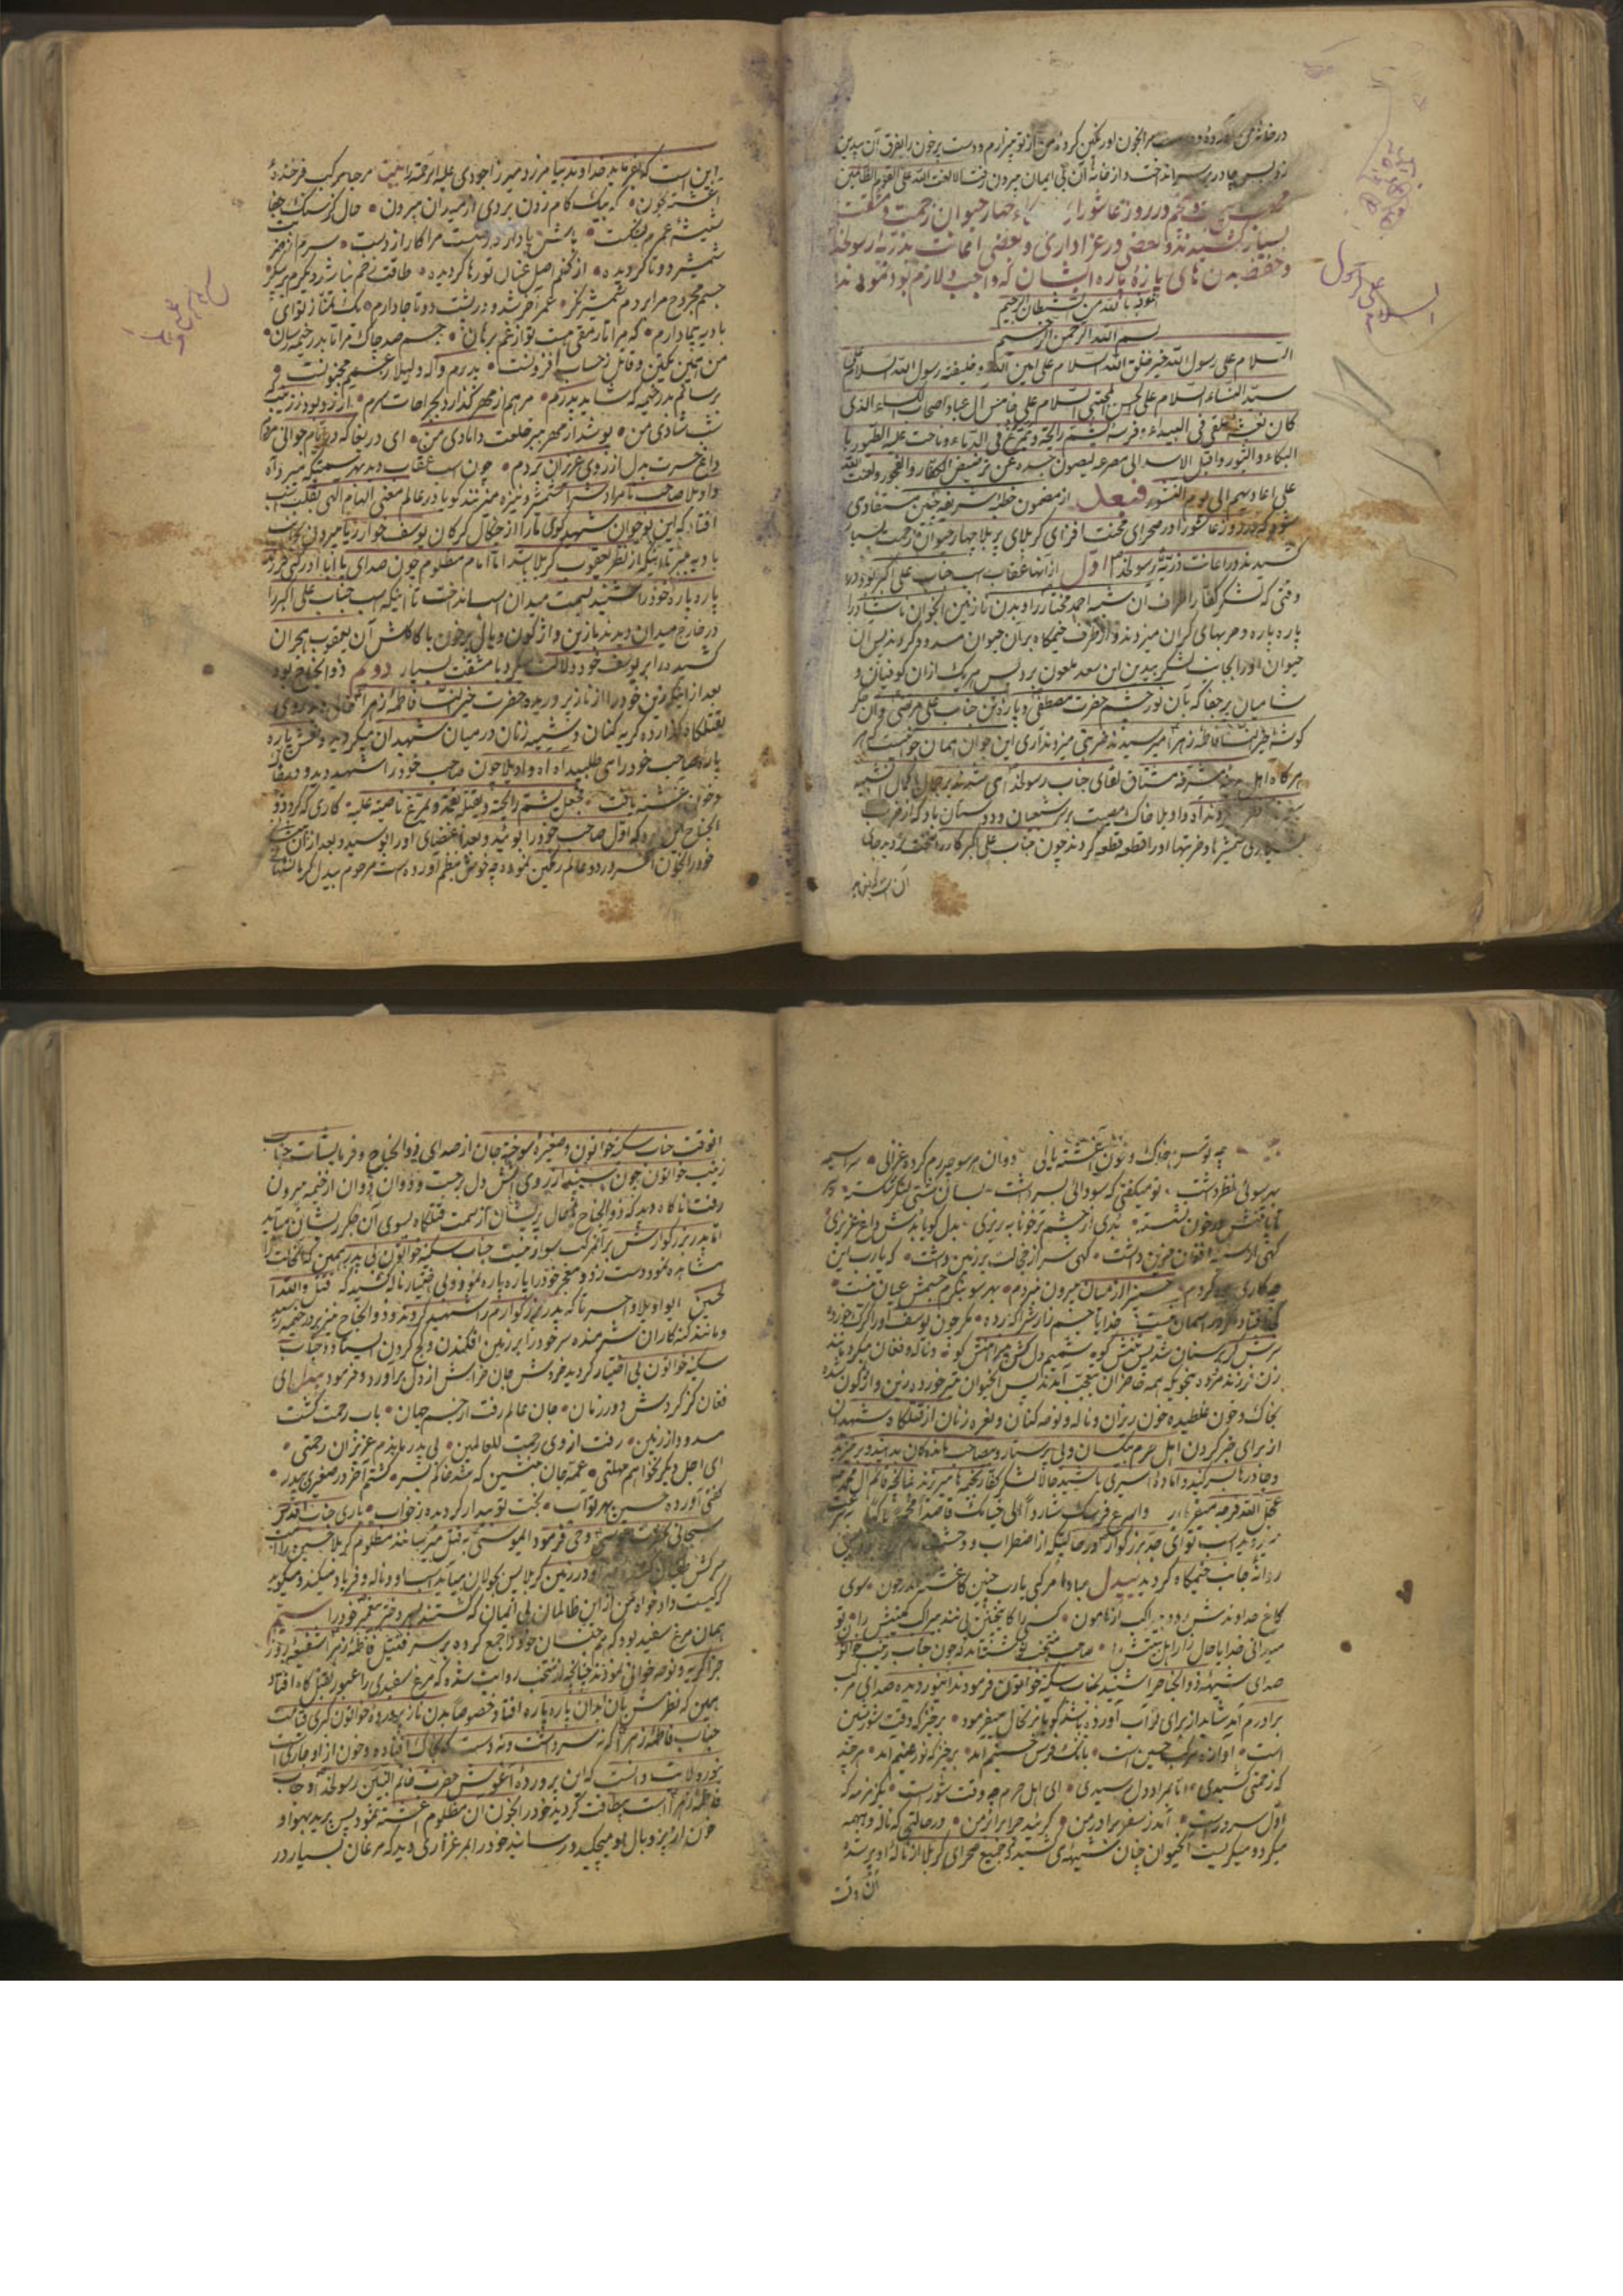 در خانه من آورده و دست مرا بخون او رنگین کرده من از تو بیزارم و دست پر خون را بفرق آن بیدین
زد پس چادر بسر انداخت و از خانه آن بی ایمان بیرون رفت الا لعنت الله علی القوم الظالمین
در روز عاشورا چهار حیوان زحمت و مشقت
بسیار کشیدند و بعضی در عزاداری و بعضی اعانت بذریه رسولخدا
و حفظ بدن های پاره پاره ایشان که واجب و لازم بود نمودند
اعوذ بالله من الشیطان الرجیم
بسم الله الرحمن الرحیم
السلام علی رسول الله خیر خلق الله السلام علی امین الله و خلیفة رسول الله السلام علی
سیدة النساء السلام علی الحسن المجتبی السلام علی خامس آل عبا و اصحاب الکساء الذی
کان نعشه ملقی فی البیداء و فرسه یشم رائحة و یتمرغ فی الدماء و ناحت علیه الطیور با
البکاء و الثبور و اقبل الاسد الی مصرعه لیصون جسده عن الکفار و الفجور و لعنت الله
علی اعادیهم الی یوم النشور فبعد از مضمون خطبه شریفه چنین مستفاد می
شود که در روز عاشورا در صحرای محنت افزای کربلای پر بلا چهار حیوان زحمت بسیار
کشیدند در اعانت ذریه رسولخدا اول از آنها عقاب اسب جناب علی اکبر بود در
وقتی که لشکر کفار اطراف آن شبیه احمد مختار را و بدن نازنین آنجوان ناشاد را
پاره پاره و حربهای گران میزدند و از طرف خیمگاه بر آن حیوان مسدود کردند پس آن
حیوان او را بجانب لشکر بیدین ابن سعد ملعون برد پس هر یک از آن کوفیان و
شامیان پر جفا که بآن نور چشم حضرت مصطفی و پاره تن جناب علی مرتضی و آن جگر
گوشه خیر النسا فاطمه زهرا میرسیدند ضربتی میزدند آری این جوان همان جوانیست که هر
هر گاه اهل مدینه مشرفه مشتاق لقای جناب رسولخدا می شدند بر جمال با کمال آن شبیه
آه و اویلا خاک مصیبت بر سر شیعیان و دوستان باد که از ضرب
شمشیرها و حربتها او را قطعه قطعه کردند چون جناب علی اکبر کار را سخت دید
السلام علی الرسول
این است که عرض نماید خداوند بیامرزد میرزا جودی علیه الرحمه را مرحبا مرکب فرخنده
آغشته بخون • که بیک گام زدن بردی از میدان بیرون • حال کز سنگ جفا
شیشه عمرم بشکست • باش پادار دمی نیست مرا کار از دست • سرم از ضرب
شمشیر دو تا گردیده • از کفم اصل عنان تو رها گردیده • طاقت زخم نباشد دگرم بر پیکر
جسم مجروح مرا از دم شمشیر گذر • عمر آخر شد و در پشت دو تا جا دارم • یک تمنا ز تو ای
بادیه پیما دارم • که مرا تا رمقی هست تو از غم برهان • جسم صد چاک مرا تا بدر خیمه رسان
من همین یکتن و قاتل ز حساب افزونست • پدرم واله و لیلا ز غمم مجنونست
برسانم بدر خیمه که شاید پدرم • مرهم از مهر گذارد بجراحات سرم • آرزو بود ز زینب
شب شادی من • پوشد از مهر ببر خلعت دامادی من • ای دریغا که در ایام جوانی مردم
داغ حسرت بدل از روی عزیزان بردم • چون اسب عقاب دید بهر سمتیکه میرود آه
واویلا صاحب نامراد شرا شمشیر و نیزه میزنند گویا در عالم معنی الهام الهی بقلب اسب
افتاد که این نو جوان شهید کوی مارا از چنگال گرگان یوسف خوار ربا بیرون
پاره پاره خود را شنید بسمت میدان اسب انداخت تا اینکه اسب جناب علی اکبر را
در خارج میدان دیدند با زین واژگون و یالی پر خون با کاکلش آن یعقوب هجران
کشیده در ابر یوسف خود دلالت میکرد با مشقت بسیار دویم ذو الجناح بود
بعد از اینکه بدن خود را از ناز پروریده حضرت خیر النسا فاطمه زهرا خالی دید روی
بقتلگاه گذارده گریه کنان و شیهه زنان در میان شهیدان میگردید و نعش پاره
پاره صاحب خود را می طلبید آه آه واویلا چون صاحب خود را شهید دید و در خاک
و خون آغشته یافت • فجعل یشم رائحته و یقبله بفمه و یمرغ ناصیته علیه کاری که کرد ذو
الجناح این بود که اول صاحب خود را بوئید و بعد اعضای او را بوسید و بعد از آن
خود را بخون آن سرور دو عالم رنگین نمود و چه خوش بنظم آورده است مرحوم بیدل کرمانشاهی
چه توسن خاک و خون آغشته یالی دوان هر سو چو رم کرده غزالی • سراسیمه
بهر سوئی نظر داشت • تو میگفتی که سودائی بسر داشت بسان کشتی لنگر شکسته •
تا پا تنش در خون نشسته • بدی از چشم تر خونابه ریزی بدل گویا بدش داغ عزیزی
گهی از سینه افغان حزین داشت • گهی سر از خجالت بر زمین داشت • که یارب این
چه کاری بود کردم • حسین از میان بیرون نبردم • بهر سو بنگرم جسمش عیان نیست •
خدایا جسم زارش را که برده • مگر چون یوسف او را گرگ خورده
سرش گر بر سنان شد پس تنش کو • شمیم دل کش پیراهنش کو • و ناله و فغان میکرد مانند
زن فرزند مرده بنحویکه همه حاضران بتعجب آمدند پس آنحیوان تیر خورده با زین واژگون شده
بخاک و خون غلطیده خون ریزان و ناله و نوحه کنان و نعره زنان از قتلگاه شهیدان
از برای خبر کردن اهل حرم بیکسان و بی پرستار و مصاحب مانده گان
و چادرها بسر کنید و آماده اسیری باشید حالا لشکر کفار بخیمه ها میریزند چنانچه قائم آل محمد
عجل الله فرجه میفرماید و اسرع فرسک شاردا الی خیامک قاصدا محمحما باکیا
میدوید اسب تو ای جد بزرگوار در حالتیکه از اضطراب و وحشت
روانه جانب خیمگاه گردید بیدل مبادا مرکبی یارب چنین کاغشته در خون • سوی
میرانی خدایا حال زار اهل بیتش را • صاحب منتخب نوشته اند که چون جناب زینب خواتون
صدای شیهه ذو الجناح را شنید بجناب سکینه خواتون فرمودند ای نور دیده صدای مرکب
برادرم آید شاید از برای تو آب آورده باشد گویا بزبانحال میفرمود • برخیز که وقت شور و شین
است • آوازه مرکب حسین است • بانگ فرس حسینم آید • برخیز که نور عینم آید • هر چند
که زحمتی کشیدی • تا بمراد دل رسیدی • ای اهل حرم چه وقت شور است •
اول سرور است • آمد ز سفر برادر من • گریید چرا برابر من • در حالتی که ناله و همهمه
میکرد و میگریست آنحیوان چنان شیهه ی کشید که جمیع صحرای کربلا از ناله او پر شد
آن وقت
آنوقت جناب سکینه خواتون و صغیره سوخته جان از صدای ذو الجناح و فرمایشات جناب
زینب خواتون چون سپند از روی آتش دل برجست و دوان دوان از خیمه بیرون
رفت ناگاه دید که ذو الجناح بحال پریشان از سمت قتلگاه بسوی آن جگر ریشان می آید
اما پدر بزرگوارش بر آن مرکب سوار نیست جناب سکینه خواتون بی پدر همین که آنحالت را
مشاهده نمود دست زد و معجر خود را پاره پاره نمود و بی اختیار ناله کشید که قتل والله
الحسین ای واویلا و احسرتا که پدر بزرگوارم را شهید کردند و ذو الجناح نیز بدر خیمه رسید
و مانند گنه کاران شرمنده سر خود را بر زمین افکندن و کج گردن ایستاد و جناب
سکینه خواتون بی اختیار گردید خروش جان خراش از دل برآورد و فرمود بیدل ای
فغان کز گردش دور زمان • جان عالم رفت از جسم جهان • باب رحمت گشت
مسدود از زمین • رفت از وی رحمت للعالمین • بی پدر ماندم عزیزان رحمتی •
ای اجل دیگر نخواهم مهلتی • عمه جان بنشین که شد خاکم بسر • گشتم آخر در صغیری بی پدر •
گفتی آورده حسین بهر تو آب • بخت تو بیدار کردیده ز خواب • باری جناب اقدس
سبحانی بحضرت موسی وحی فرمود ای موسی بقتل میرسانند مظلوم کربلا حسین را اسب
سرکش عنان و در زمین کربلا پس بجولان میآید اسب او و ناله و فریاد میکند و میگوید
که کیست داد خواه من از این ظالمان بی ایمان که کشتند پسر دختر پیغمبر خود را سیم
همان مرغ سفید بود که هم جنسان خود را جمع کرده بر سر قتیل فاطمه زهرا شفیعه روز
جزا گریه و نوحه خوانی نمودند چنانچه از منتخب روایت شده که مرغ سفیدی را عبور بقتلگاه افتاد
همین که نظرش بآن ابدان پاره پاره افتاد خصوصا بدن ناز پرورده خواتون کبری قیامت
جناب فاطمه زهرا که نه سر داشت و نه دست که بخاک افتاده و خون از او جاری است
بنور ولایت دانست که این پرورده آغوش حضرت خاتم النبیین رسولخدا و جناب
فاطمه زهرا است بیطاقت گردید خود را بخون آن مظلوم آغشته نمود پس پرید بهوا و
خون از پر و بال او میچکید و رسانید خود را بمرغزاری دید که مرغان بسیار در